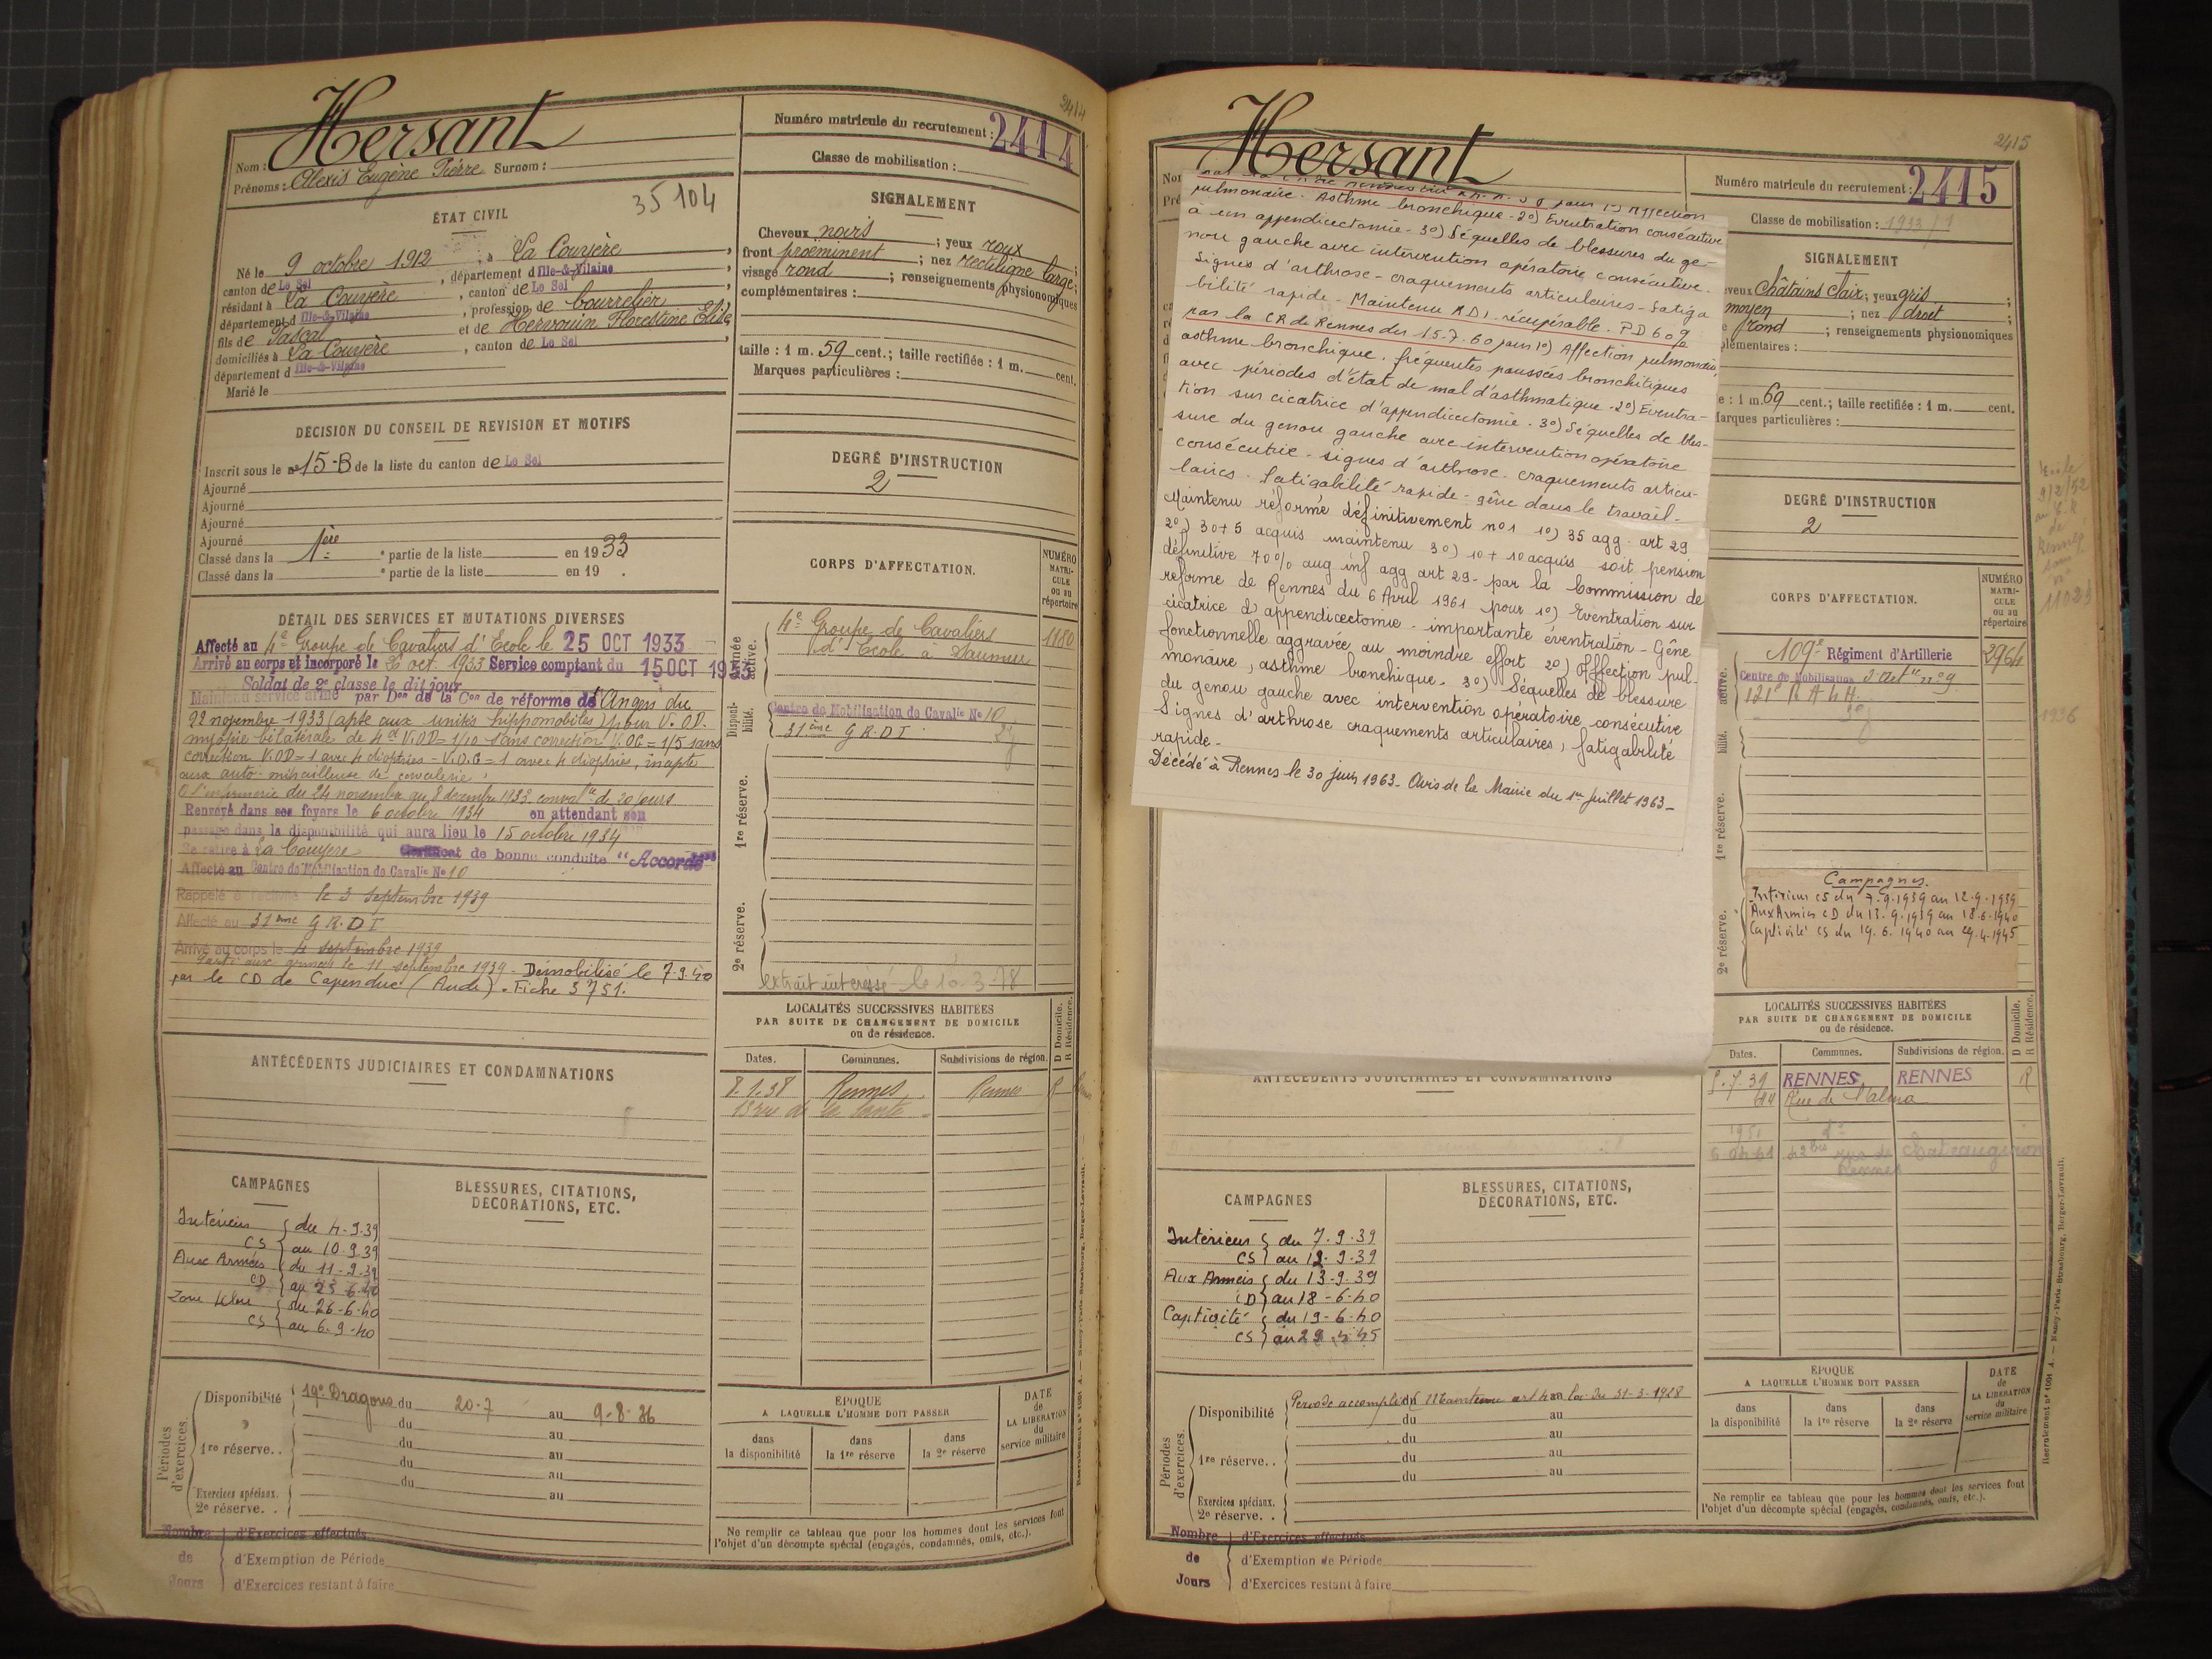 2414
Hersant
Nom :
Prénoms : Alexis Eugène Pierre Surnom :
35104
Numéro matricule du recrutement : 2414
Classe de mobilisation :
ÉTAT CIVIL
Né le 9 octobre 1912, à La Couyère,
canton de Le Sel, département d Ille-&-Vilaine,
résidant à La Couyère, canton de Le Sel,
département d Ille-&-Vilaine, profession de bourrelier
fils de Pascal et de Hervouin Florestine Elise,
domiciliés à La Couyère, canton de Le Sel
département d Ille-&-Vilaine
Marié le
SIGNALEMENT
Cheveux noirs ; yeux roux ;
front proëminent ; nez rectiligne large ;
visage rond ; renseignements physionomiques
complémentaires :
taille : 1 m. 59 cent.; taille rectifiée : 1 m. cent.
Marques particulières :
DÉCISION DU CONSEIL DE REVISION ET MOTIFS
Inscrit sous le nº 15-B de la liste du canton de Le Sel
Ajourné
Ajourné
Ajourné
Ajourné
Classé dans la 1ère e partie de la liste en 1933
Classé dans la e partie de la liste en 19 .
DEGRÉ D'INSTRUCTION
2
DÉTAIL DES SERVICES ET MUTATIONS DIVERSES
Affecté au 4e Groupe de Cavaliers d'Ecole le 25 OCT 1933
Arrivé au corps et incorporé le 26 oct. 1933 Service comptant du 15 OCT 1933
Soldat de 2e classe le dit jour
Maintenu service armé par Don de la Con de réforme d'Angers du
22 novembre 1933 (apte aux unités hippomobiles) pour V.OD.
myopie bilatérale de 4d V.OD = 1/10 sans correction V.OG = 1/5 sans
correction V.OD = 1 avec 4 dioptries - V.O.G = 1 avec 4 dioptries, inapte
aux auto-mitrailleuse de cavalerie.
A l'infirmerie du 24 novembre au 8 décembre 1933 conval. de 30 jours
Renvoyé dans ses foyers le 6 octobre 1934 en attendant son
passage dans la disponibilité qui aura lieu le 15 octobre 1934
Se retire à La Couyère Certificat de bonne conduite "Accordé"
Affecté au Centre de Mobilisation de Cavalie No 10
Rappelé à l'activité le 3 septembre 1939
Affecté au 31ème G.R.D.I
Arrivé au corps le 4 septembre 1939
Parti aux armées le 11 septembre 1939 - Démobilisé le 7-9-40
par le CD de Capendue (Aude). Fiche 3751.
CORPS D'AFFECTATION.
NUMÉRO MATRICULE ou au répertoire
Armée active.
4e Groupe de Cavaliers 1180
d'Ecole à Saumur
Disponibilité.
Centre de Mobilisation de Cavalie No 10
31ème G.R.D.I
1re réserve.
2e réserve.
extrait intéressé le 10-3-78
ANTÉCÉDENTS JUDICIAIRES ET CONDAMNATIONS
LOCALITÉS SUCCESSIVES HABITÉES
PAR SUITE DE CHANGEMENT DE DOMICILE
ou de résidence.
D Domicile.
R Résidence.
Dates. Communes. Subdivisions de région.
8.1.38 Rennes Rennes R
13 rue de la Santé
CAMPAGNES
Intérieur du 4-9-39
CS au 10-9-39
Aux Armées du 11-9-39
CD au 25-6-40
Zone libre du 26-6-40
CS au 6-9-40
BLESSURES, CITATIONS,
DÉCORATIONS, ETC.
Périodes d'exercices.
Disponibilité 19e Dragons du 20-7 au 9-8-36
du au
1re réserve. . du au
du au
du au
Exercices spéciaux.
2e réserve. .
ÉPOQUE
A LAQUELLE L'HOMME DOIT PASSER
DATE de LA LIBÉRATION du service militaire
dans la disponibilité
dans la 1re réserve
dans la 2e réserve
Ne remplir ce tableau que pour les hommes dont les services font
l'objet d'un décompte spécial (engagés, condamnés, omis, etc.).
Nombre de Jours
d'Exercices effectués
d'Exemption de Période
d'Exercices restant à faire
2415
Hersant
Numéro matricule du recrutement : 2415
Classe de mobilisation : 1933/1
pulmonaire. Asthme bronchique - 2o) Eventration consécutive
à un appendicectomie - 3o) Séquelles de blessures du ge-
nou gauche avec intervention opératoire consécutive.
Signes d'arthrose - craquements articulaires - fatiga
bilité rapide - Maintenu RD1 - récupérable. PD 60%
par la CR de Rennes du 15-7-60 pour 1o) Affection pulmonaire,
asthme bronchique, fréquentes poussées bronchitiques
avec périodes d'état de mal d'asthmatique - 2o) Eventra-
tion sur cicatrice d'appendicectomie - 3o) Séquelles de bles-
sure du genou gauche avec intervention opératoire
consécutive - signes d'arthrose - craquements articu-
laires - fatigabilité rapide - gêne dans le travail -
Maintenu réformé définitivement no1 1o) 35 agg. art 29
2o) 30+5 acquis maintenu 3o) 10+10 acquis soit pension
définitive 70% aug inf agg art 29 - par la Commission de
réforme de Rennes du 6 Avril 1961 pour 1o) Eventration sur
cicatrice d'appendicectomie - importante éventration - Gêne
fonctionnelle aggravée au moindre effort 2o) Affection pul-
monaire, asthme bronchique - 3o) Séquelles de blessure
du genou gauche avec intervention opératoire consécutive
Signes d'arthrose craquements articulaires, fatigabilité
rapide -
Décédé à Rennes le 30 juin 1963 - Avis de la Mairie du 1er juillet 1963 -
SIGNALEMENT
Châtains clair ; yeux gris ;
moyen ; nez droit ;
rond ; renseignements physionomiques
complémentaires :
1 m. 69 cent.; taille rectifiée : 1 m. cent.
Marques particulières :
DEGRÉ D'INSTRUCTION
2
CORPS D'AFFECTATION.
NUMÉRO MATRICULE ou au répertoire
109e Régiment d'Artillerie 2964
Centre de Mobilisation d'Artie no 9
121e R A L H
1936
1re réserve.
2e réserve.
Campagnes.
Intérieur CS du 7.9.1939 au 12.9.1939
Aux Armées CD du 13.9.1939 au 18.6.1940
Captivité CS du 19.6.1940 au 29.4.1945
ANTÉCÉDENTS JUDICIAIRES ET CONDAMNATIONS
LOCALITÉS SUCCESSIVES HABITÉES
PAR SUITE DE CHANGEMENT DE DOMICILE
ou de résidence.
D Domicile.
R Résidence.
Dates. Communes. Subdivisions de région.
RENNES RENNES R
Rue de l'Alma
CAMPAGNES
Intérieur du 7-9-39
CS au 12-9-39
Aux Armées du 13-9-39
CD au 18-6-40
Captivité du 19-6-40
CS au 29-4-45
BLESSURES, CITATIONS,
DÉCORATIONS, ETC.
Périodes d'exercices.
Disponibilité Période accomplie art 4 loi du 31-3-1928
du au
du au
1re réserve. . du au
du au
Exercices spéciaux.
2e réserve. .
ÉPOQUE
A LAQUELLE L'HOMME DOIT PASSER
DATE de LA LIBÉRATION du service militaire
dans la disponibilité
dans la 1re réserve
dans la 2e réserve
Ne remplir ce tableau que pour les hommes dont les services font
l'objet d'un décompte spécial (engagés, condamnés, omis, etc.).
Nombre de Jours
d'Exercices effectués
d'Exemption de Période
d'Exercices restant à faire